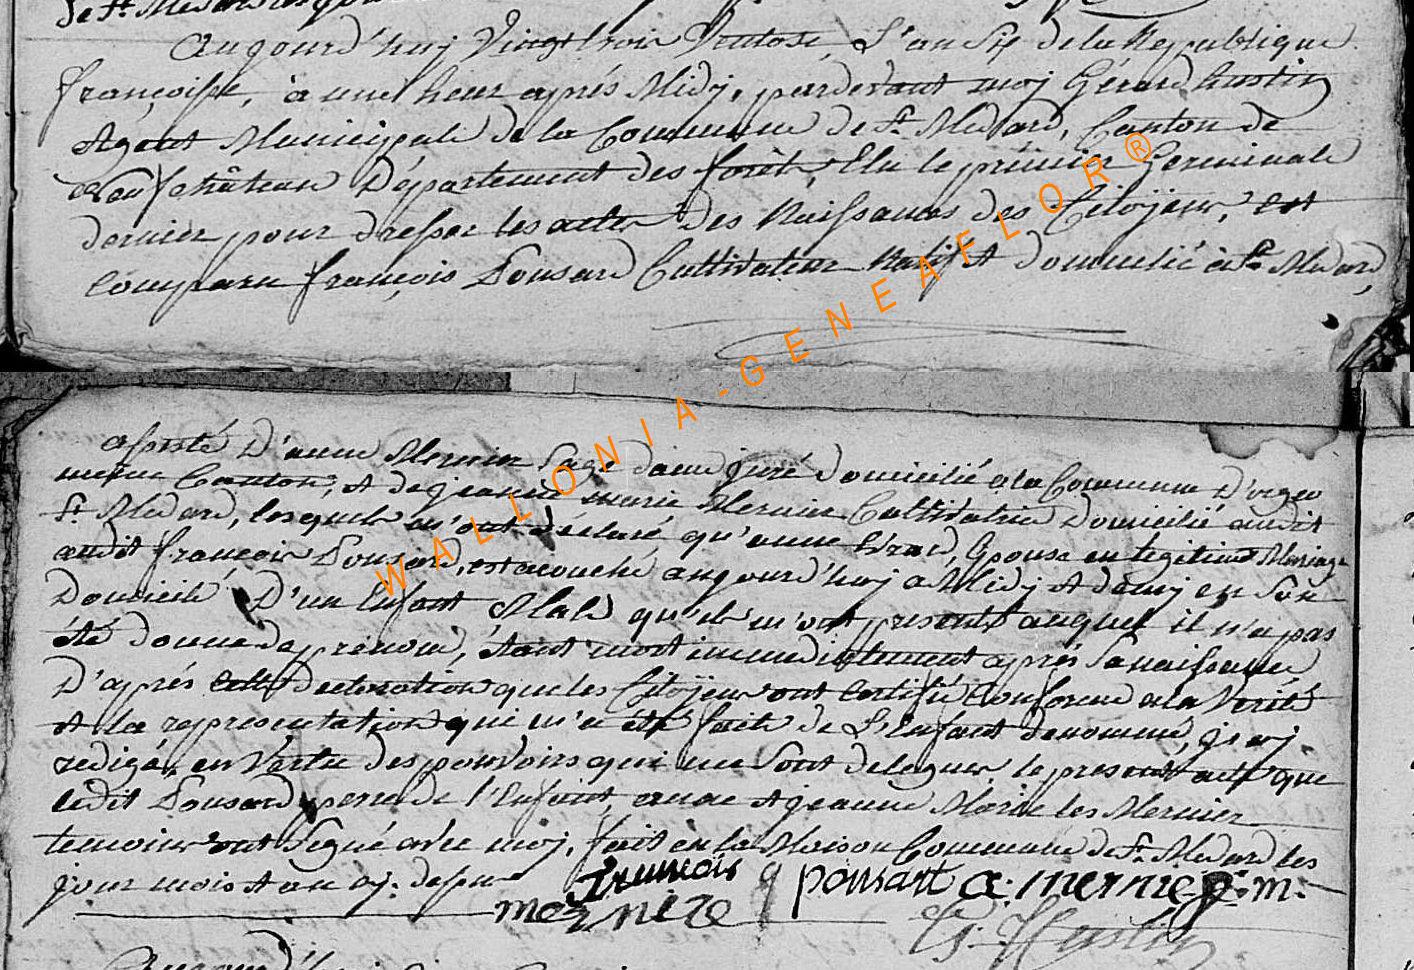 de St. Medard
Aujourd'huj Vingt trois Ventose, L'an Six de la Republique
françoisse, à une heur aprés Midj, pardevant moj Gérard hustin
Agent Municipale de la Commune de St. Medard, Canton de
Neufchâteau Département des forêt, Elu le prémier Germinale
dernier pour dresser les actes des Naissances des Citoÿens, est
comparu françois Ponsard Cultivateur Natif et domicilié à St. Medard,
assisté D'anne Mernier Sage dame juré domicilié a la Commune D'orgeo
meme Canton, et de jeanne marie Mernier Cultivatrice Domicilié audit
St. Medard, lesquels m'ont déclaré qu'anne Evrard, Epouse en legitime Mariage
audit françois Ponsard, est acouché aujourd'huj a Midj et demj en Son
Domicile D'un Enfant Male qu'ils m'ont presenté auquel il n'a pas
été donne de prénom, étant mort immediatement aprés Sa naissance
D'aprés cette declaration que les Citoÿens ont certifié Conforme a la Verité
et la representation qui m'a été faite de L'Enfant denommé, j'ai
redigé, en Vertu des pouvoirs qui me Sont delegues, le present acte que
ledit Ponsard pere de l'Enfant, anne et jeanne Marie les Mernier
temoins ont Signé avec moj, fait en la Maison Commune de St. Medard les
jour mois et an
francois ponsart a: mernie j: m:
mernire
G: Hustin
WALLONIA-GENEAFLOR®